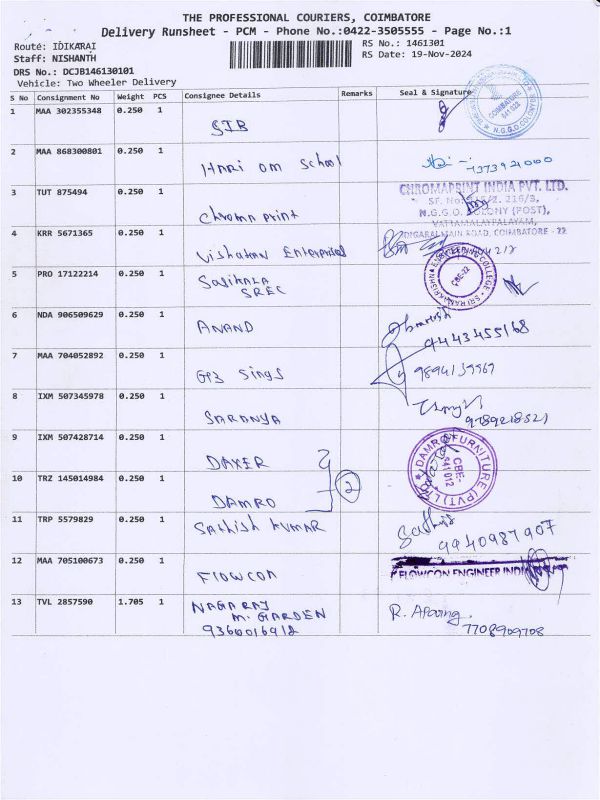 THE PROFESSIONAL COURIERS, COIMBATORE
Delivery Runsheet - PCM - Phone No.:0422-3505555 - Page No.:1
Route: IDIKARAI
RS No.: 1461301
Staff: NISHANTH
RS Date: 19-Nov-2024
DRS No.: DCJB146130101
Vehicle: Two Wheeler Delivery
S No Consignment No Weight PCS Consignee Details Remarks Seal & Signature
1 MAA 302355348 0.250 1 SIB
COIMBATORE 641 022
N.G.G.O. COLONY
2 MAA 868300801 0.250 1 HARI OM School 7373921000
3 TUT 875494 0.250 1 Chroma print
CHROMAPRINT INDIA PVT. LTD.
SF. No. 216/3,
N.G.G.O. COLONY (POST),
VATTAMALAYPALAYAM,
IDIGARAI MAIN ROAD, COIMBATORE - 22
4 KRR 5671365 0.250 1 Vishahan Enterprises
5 PRO 17122214 0.250 1 Sasikala
SREC
SRI RAMAKRISHNA ENGINEERING COLLEGE
CBE-22
6 NDA 906509629 0.250 1 ANAND
9443455168
7 MAA 704052892 0.250 1 GP3 Sings 9894139567
8 IXM 507345978 0.250 1 SARANYA 9789218521
9 IXM 507428714 0.250 1 DAYER
DAMRO FURNITURE (PVT) LTD
CBE-
641 012
10 TRZ 145014984 0.250 1 DAMRO 2
11 TRP 5579829 0.250 1 Sathish KUMAR Sathis
9940987907
12 MAA 705100673 0.250 1 FLOWCON
FLOWCON ENGINEER INDIA
13 TVL 2857590 1.705 1 NAGARAJ
M. GARDEN
9360016912
R.
7708909708